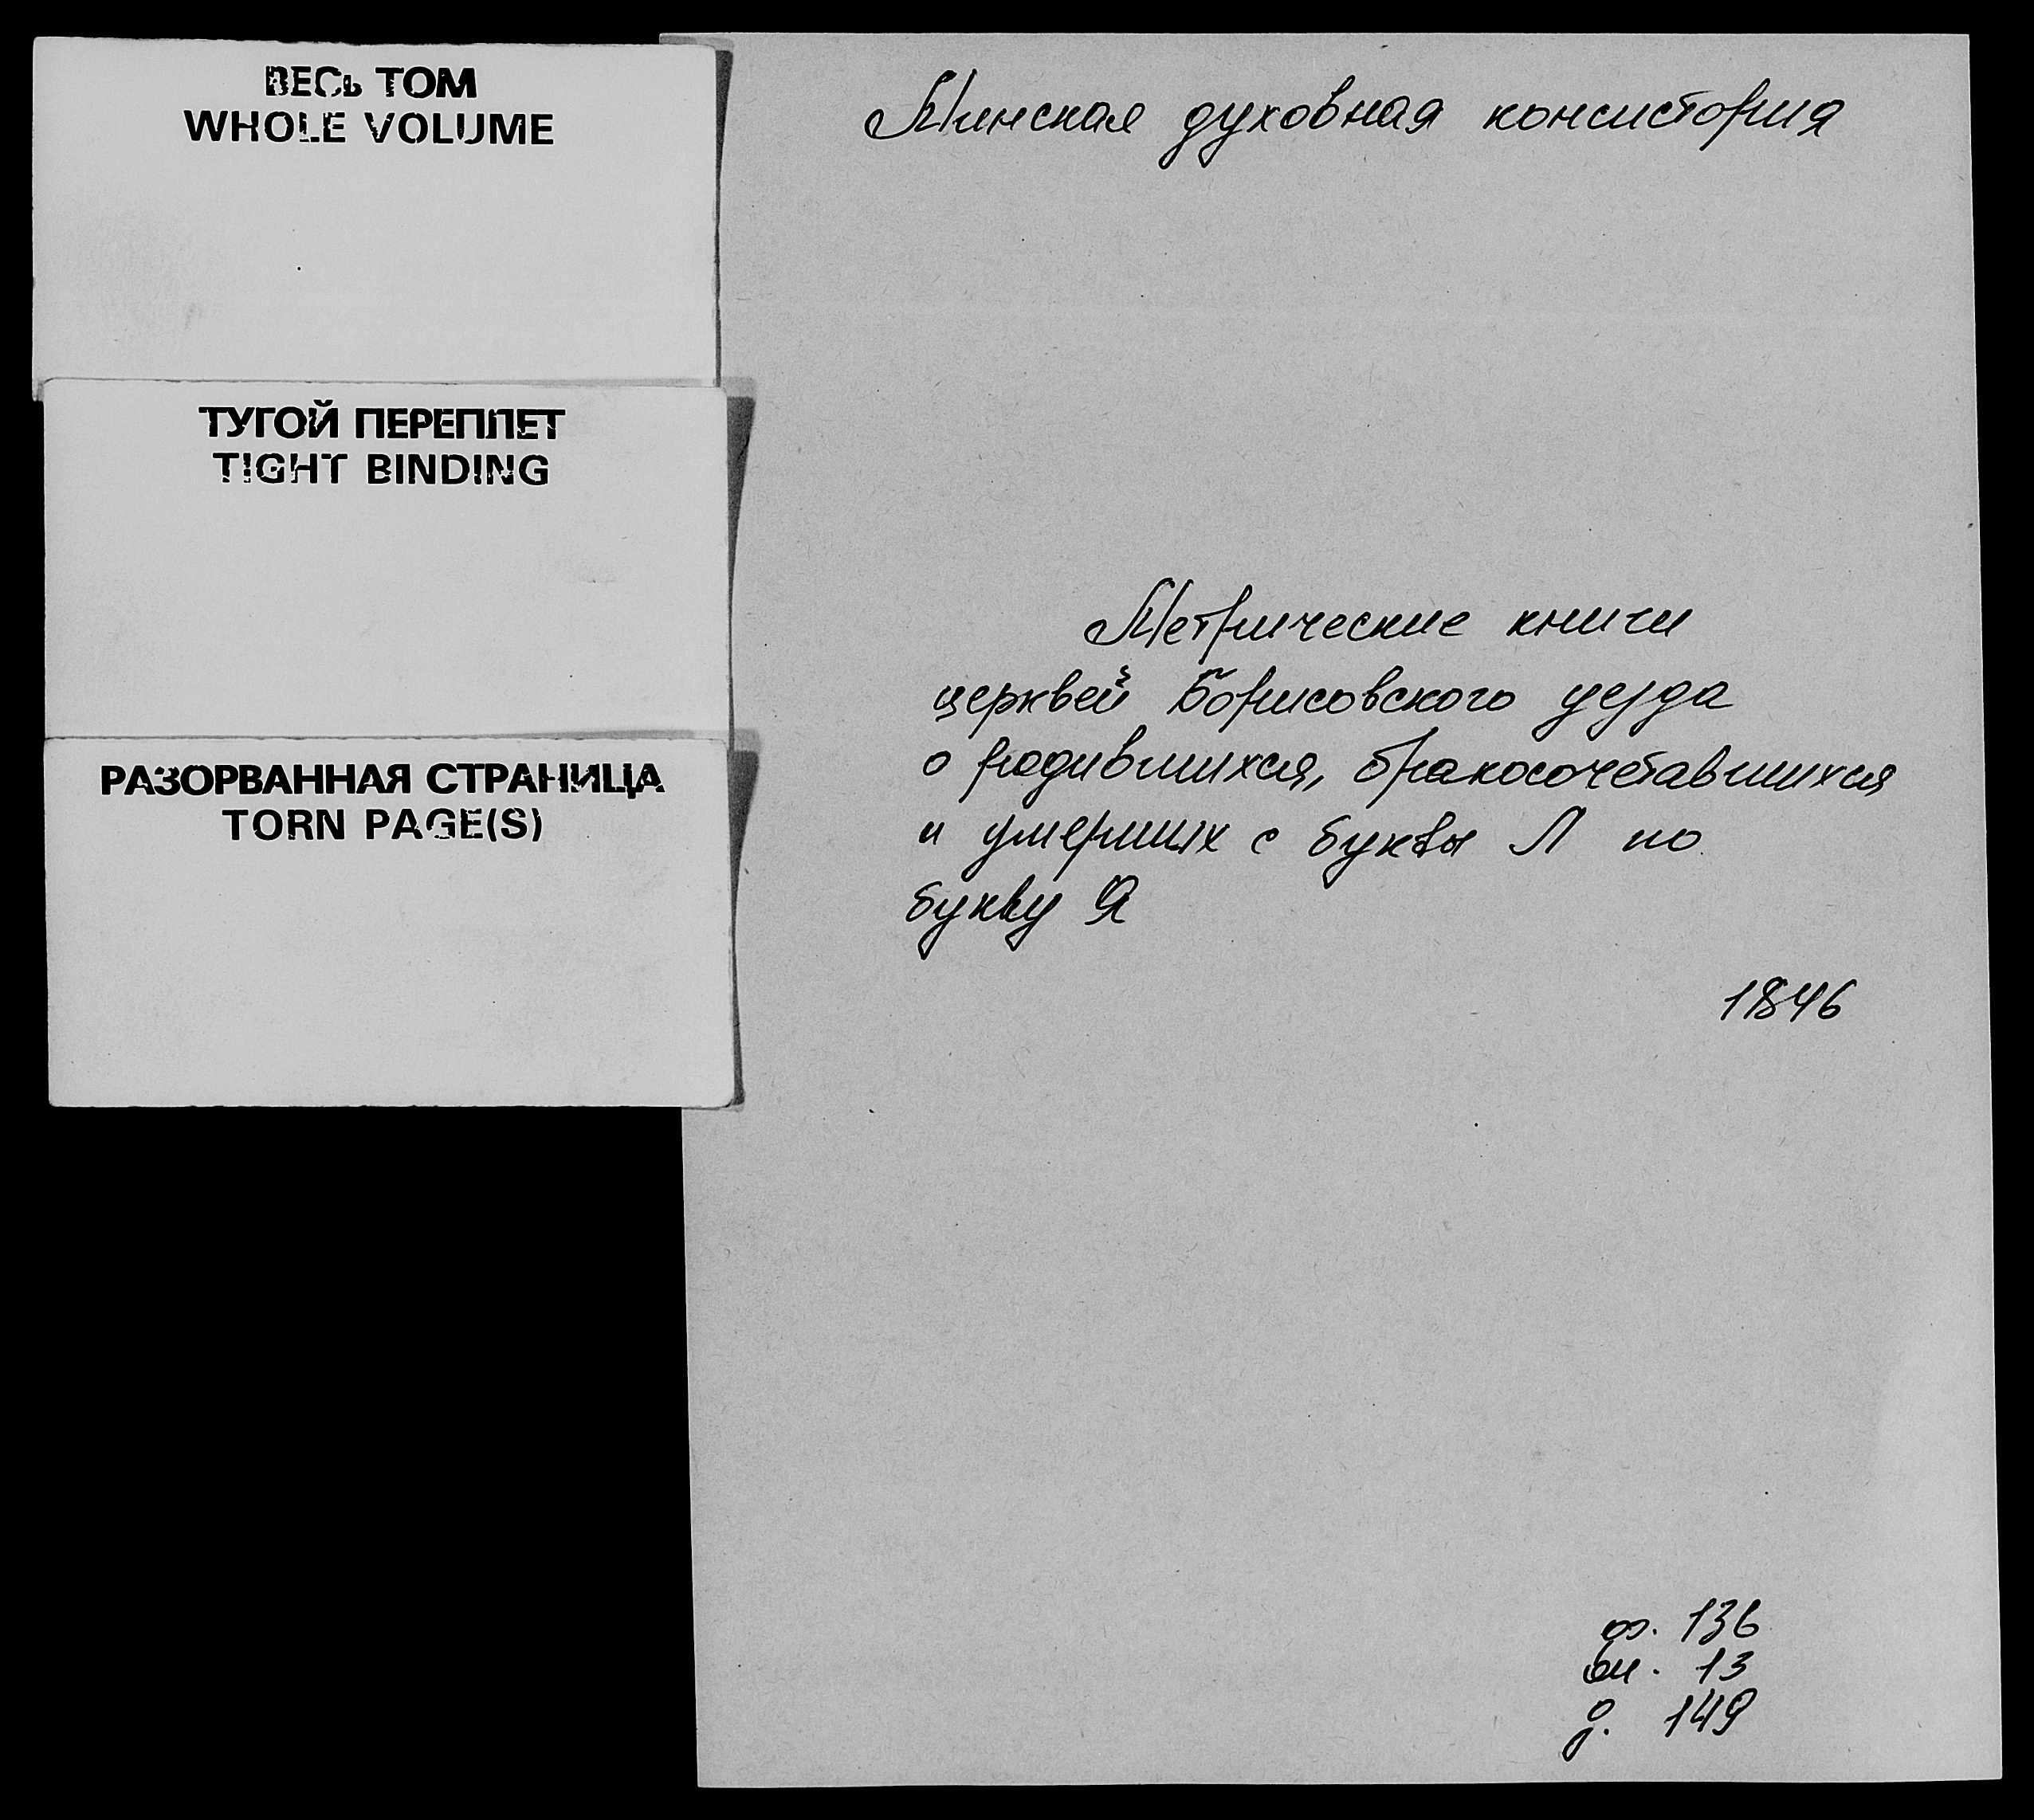 ВЕСЬ ТОМ
WHOLE VOLUME
ТУГОЙ ПЕРЕПЛЕТ
TIGHT BINDING
РАЗОРВАННАЯ СТРАНИЦА
TORN PAGE(S)
Минская духовная консистория
Метрические книги
церквей Борисовского уезда
о родившихся, бракосочетавшихся
и умерших с буквы Л по
букву Я
1846
ф. 136
оп. 13
д. 149